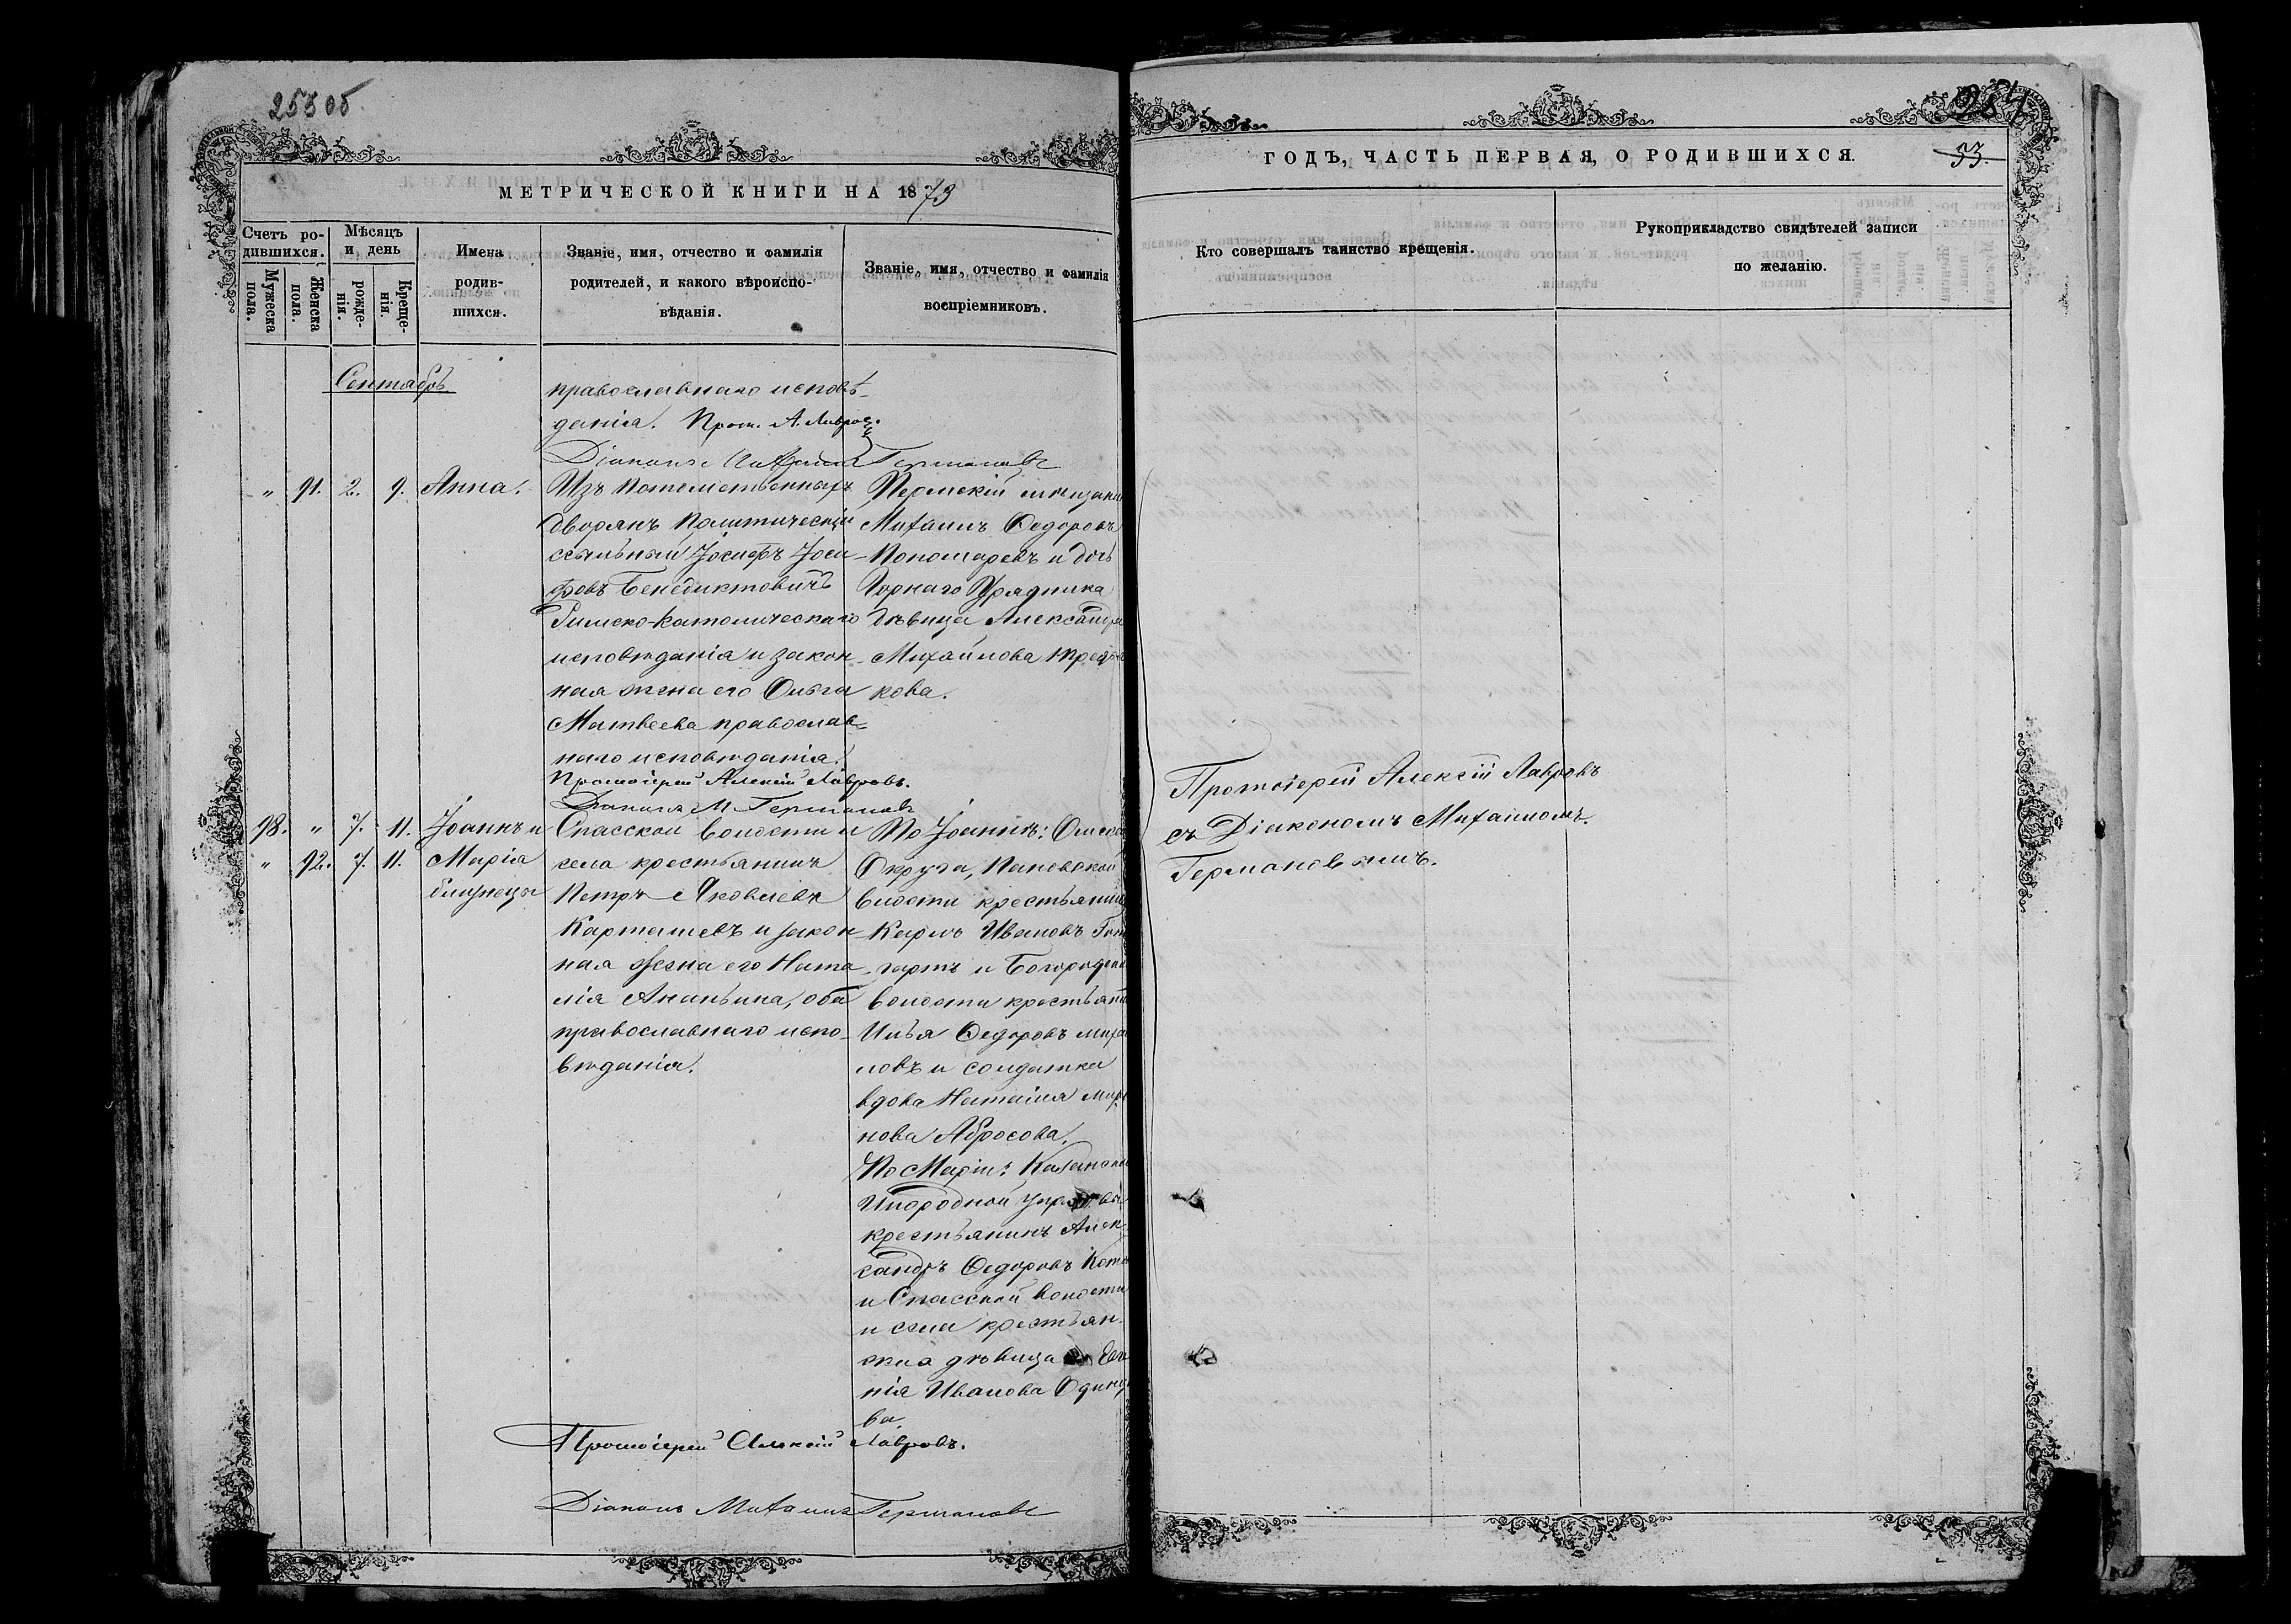 25506
МЕТРИЧЕСКОЙ КНИГИ НА 1873
Счетъ ро-
дившихся.
Мужеска
пола.
Женска
пола.
Мѣсяцъ
и день
рожде-
нія.
Креще-
нія.
Имена
родив-
шихся.
Званіе, имя, отчество и фамилія
родителей, и какого вѣроиспо-
вѣданія.
Званіе, имя, отчество и фамилія
воспріемниковъ.
Сентябрь
православнаго исповѣ-
данія. Прот. А. Лавровъ.
Діаконъ Михаилъ Германовъ
" 91. 2. 9. Анна.
Изъ потомственныхъ
дворянъ Политическій
ссыльный Іосифъ Іоси-
фовъ Бенедиктовичъ
Римско-Католическаго
исповѣданія и закон-
ная жена его Ольга
Матвеева православ-
наго исповѣданія.
Протоіерей Алексій Лавровъ.
Діаконъ М Германовъ
Пермскій мѣщани
Михаилъ Федоровъ
Пономаревъ и дочь
Горнаго Урядника
дѣвица Александра
Михайлова
кова.
98. " 7. 11. Іоаннъ и
" 92. 7. 11. Марія
близнецы
Спасской волости и
села крестьянинъ
Петръ Яковлевъ
Карташевъ и закон-
ная жена его Ната-
лія Ананьина, оба
православнаго испо-
вѣданія.
По Іоаннѣ: Омска
Округа,
волости крестьянинъ
Карлъ Ивановъ
гартъ и
волости крестьяни
Илья Федоровъ Миха
ловъ и солдатка
вдова Наталія
нова Абросова.
По Маріи:
Инородной
крестьянинъ Алек-
сандръ Федоровъ
и Спасской волости
и села крестьян-
ская дѣвица Евге
нія Иванова
ва.
Протоіерей Алексій Лавровъ.
Діаконъ Михаилъ Германовъ
284
ГОДЪ, ЧАСТЬ ПЕРВАЯ, О РОДИВШИХСЯ.
53.
Кто совершалъ таинство крещенія.
Рукоприкладство свидѣтелей записи
по желанію.
Протоіерей Алексій Лавровъ
съ Діакономъ Михаиломъ
Германовымъ.